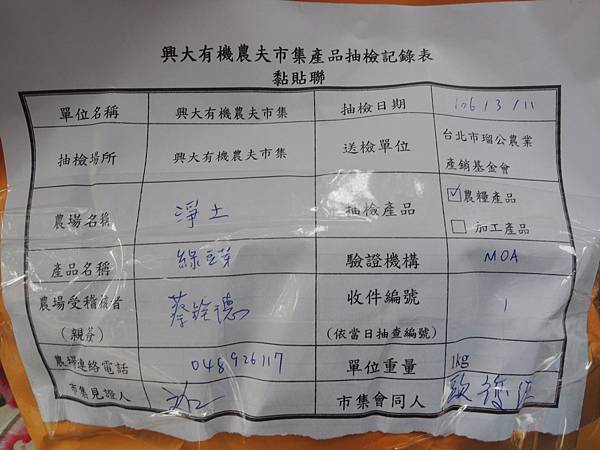 興大有機農夫市集產品抽檢記錄表
黏貼聯
單位名稱 興大有機農夫市集 抽檢日期 106/3/11
抽檢場所 興大有機農夫市集 送檢單位 台北市瑠公農業
產銷基金會
農場名稱 淨土 抽檢產品 ☑農糧產品
☐ 加工產品
產品名稱 綠豆芽 驗證機構 MOA
農場受稽核者 蔡銓德 收件編號 1
(親簽) (依當日抽查編號)
農場連絡電話 048926117 單位重量 1kg
市集見證人 市集會同人